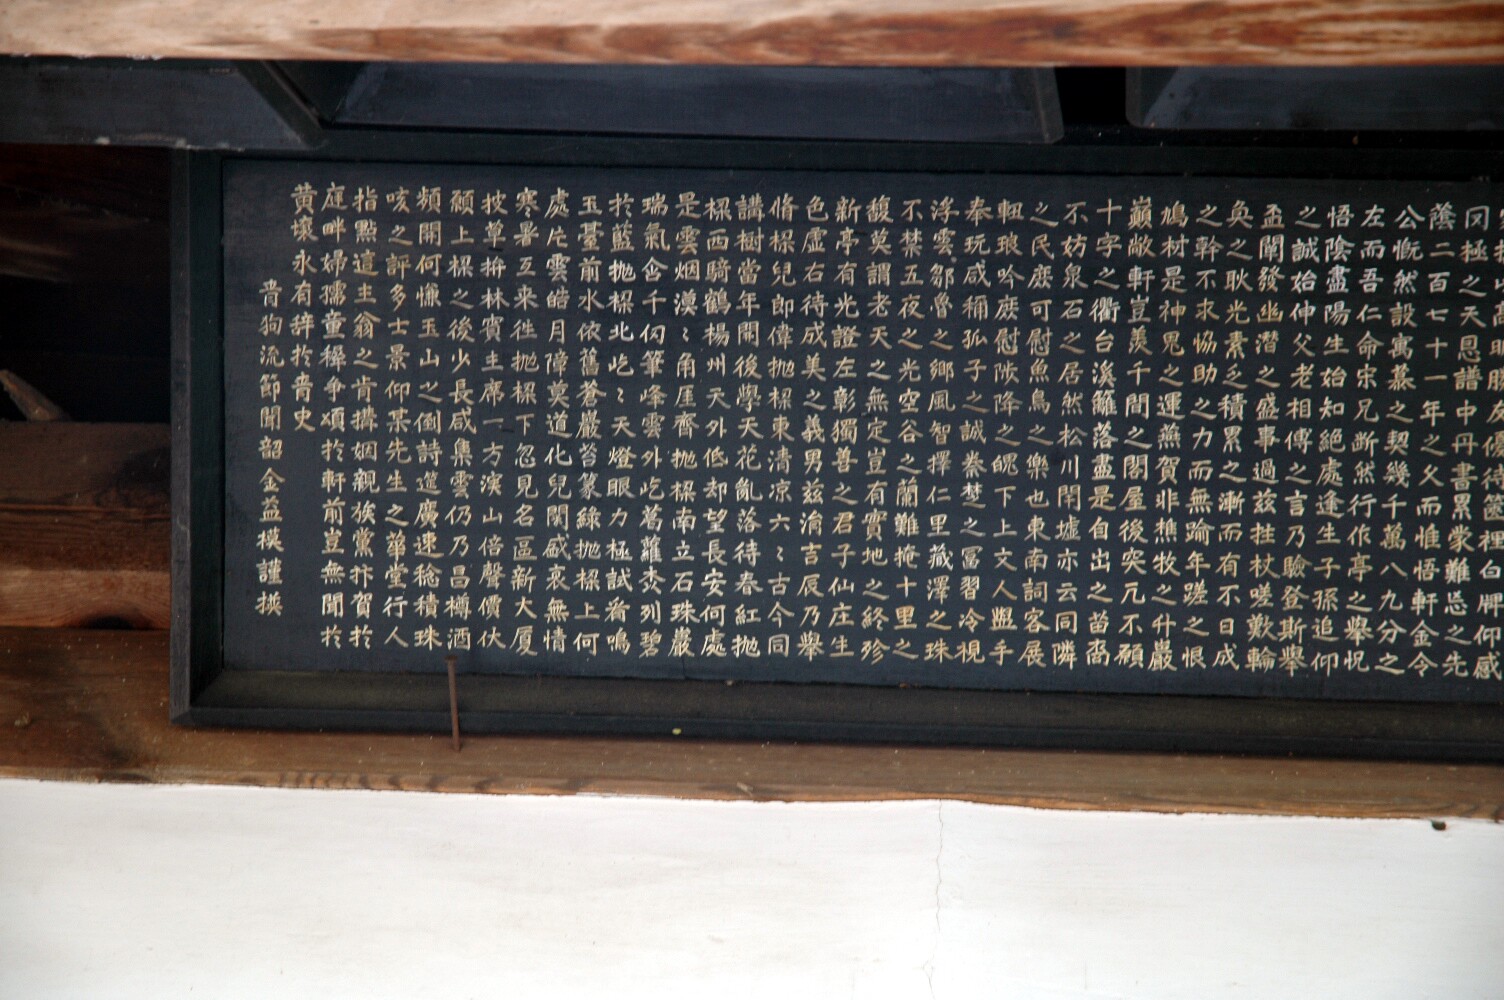 罔極之天恩譜中丹書累蒙難忘之先
蔭二百七十一年之父而惟悟軒金令
公慨然設寓慕之契幾千萬八九分之
左而吾仁命宋兄断然行作亭之舉怳
悟陰盡陽生始知絕處逢生子孫追仰
之誠始伸父老相傳之言乃驗登斯舉
盃闡發幽潛之盛事過茲拄杖嗟歎輪
奐之耿光素乏積累之漸而有不日成
之幹不求協助之力而無踰年蹉之恨
鳩村是神鬼之運燕賀非樵牧之升巖
巔敞軒豈羨千間之閎屋後突兀不願
十字之衢台溪籬落盡是自出之苗裔
不妨泉石之居然松川閈墟亦云同隣
之民庶可慰魚鳥之樂也東南詞客展
軔琅吟庶慰陟降之魄下上文人盥手
奉玩咸稱孤子之誠桊椘之冨習冷視
浮雲鄒魯之鄉風智擇仁里藏澤之珠
不禁五夜之光空谷之蘭難掩十里之
馥莫謂老天之無定豈有實地之終殄
新亭有光證左彰獨善之君子仙庄生
色虛右待成美之義男茲涓吉辰乃舉
脩樑兒郎偉抛樑東清凉六〻古今同
講樹當年開後學天花亂落待春紅抛
樑西騎鶴楊州天外低却望長安何處
是雲烟漠〻角厓齊抛樑南立石珠巖
瑞氣含千仞筆峰雲外屹萬蘿森列碧
於藍抛樑北屹〻天燈眼力極試看鳴
玉臺前水依舊蒼巖苔篆綠抛樑上何
處片雲皓月障莫道化兒関盛衰無情
寒暑互来徃抛樑下忽見名區新大厦
披草拚林賓主席一方溪山倍聲價伏
願上樑之後少長咸集雲仍乃昌樽酒
頻開何慊玉山之倒詩筵廣速稔積珠
咳之評多士景仰某先生之華堂行人
指點這主翁之肯搆姻親族黨抃賀於
庭畔婦孺童穉争頌於軒前豈無聞於
黄壤永有辞於青史
青狗流節聞韶金益模謹撰